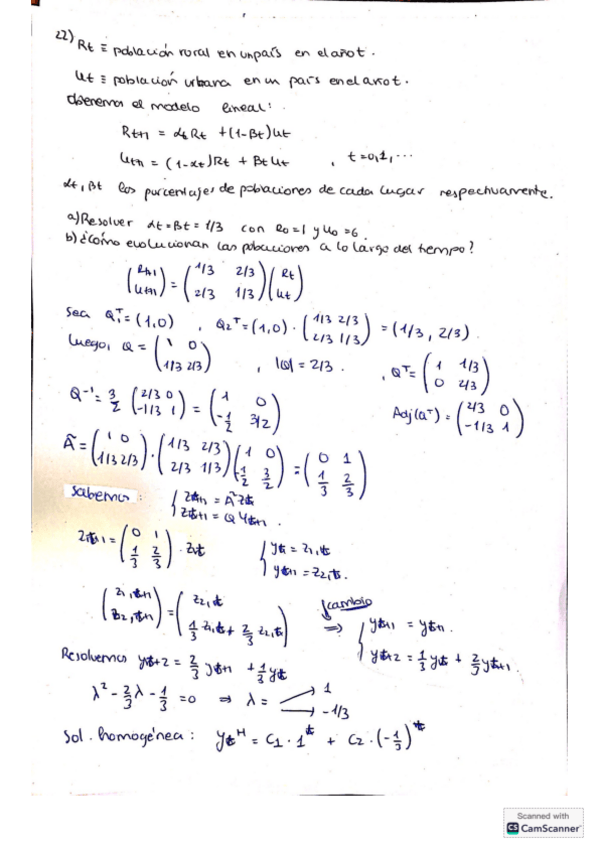 22) Rt ≡ población rural en un país en el año t.
Ut ≡ población urbana en un país en el año t.
Obtenemos el modelo lineal:
Rt+1 = αt Rt + (1-βt)Ut
Ut+1 = (1-αt)Rt + βt Ut , t=0,1,...
αt, βt los porcentajes de poblaciones de cada lugar respectivamente.
a) Resolver αt=βt=1/3 con R0=1 y U0=6.
b) ¿Cómo evolucionan las poblaciones a lo largo del tiempo?
(Rt+1 ; Ut+1) = (1/3 2/3 ; 2/3 1/3)(Rt ; Ut)
Sea Q1^T=(1,0) , Q2^T=(1,0)·(1/3 2/3 ; 2/3 1/3) = (1/3, 2/3).
Luego, Q = (1 0 ; 1/3 2/3) , |Q| = 2/3 . , Q^T = (1 1/3 ; 0 2/3)
Q^-1 = 3/2 (2/3 0 ; -1/3 1) = (1 0 ; -1/2 3/2) Adj(Q^T) = (2/3 0 ; -1/3 1)
Ã = (1 0 ; 1/3 2/3)·(1/3 2/3 ; 2/3 1/3)(1 0 ; -1/2 3/2) = (0 1 ; 1/3 2/3)
Sabemos: { Zt+1 = Ã Zt
Zt+1 = Q Yt+1 .
Zt+1 = (0 1 ; 1/3 2/3) · Zt { yt = z1,t
yt+1 = z2,t.
(z1,t+1 ; z2,t+1) = (z2,t ; 1/3 z1,t + 2/3 z2,t) cambio ⇒ { yt+1 = yt+1.
yt+2 = 1/3 yt + 2/3 yt+1.
Resolvemos yt+2 = 2/3 yt+1 + 1/3 yt
λ² - 2/3 λ - 1/3 = 0 ⇒ λ = 1
-1/3
Sol. homogénea: yt^H = C1 · 1^t + C2 · (-1/3)^t
Scanned with
CS CamScanner